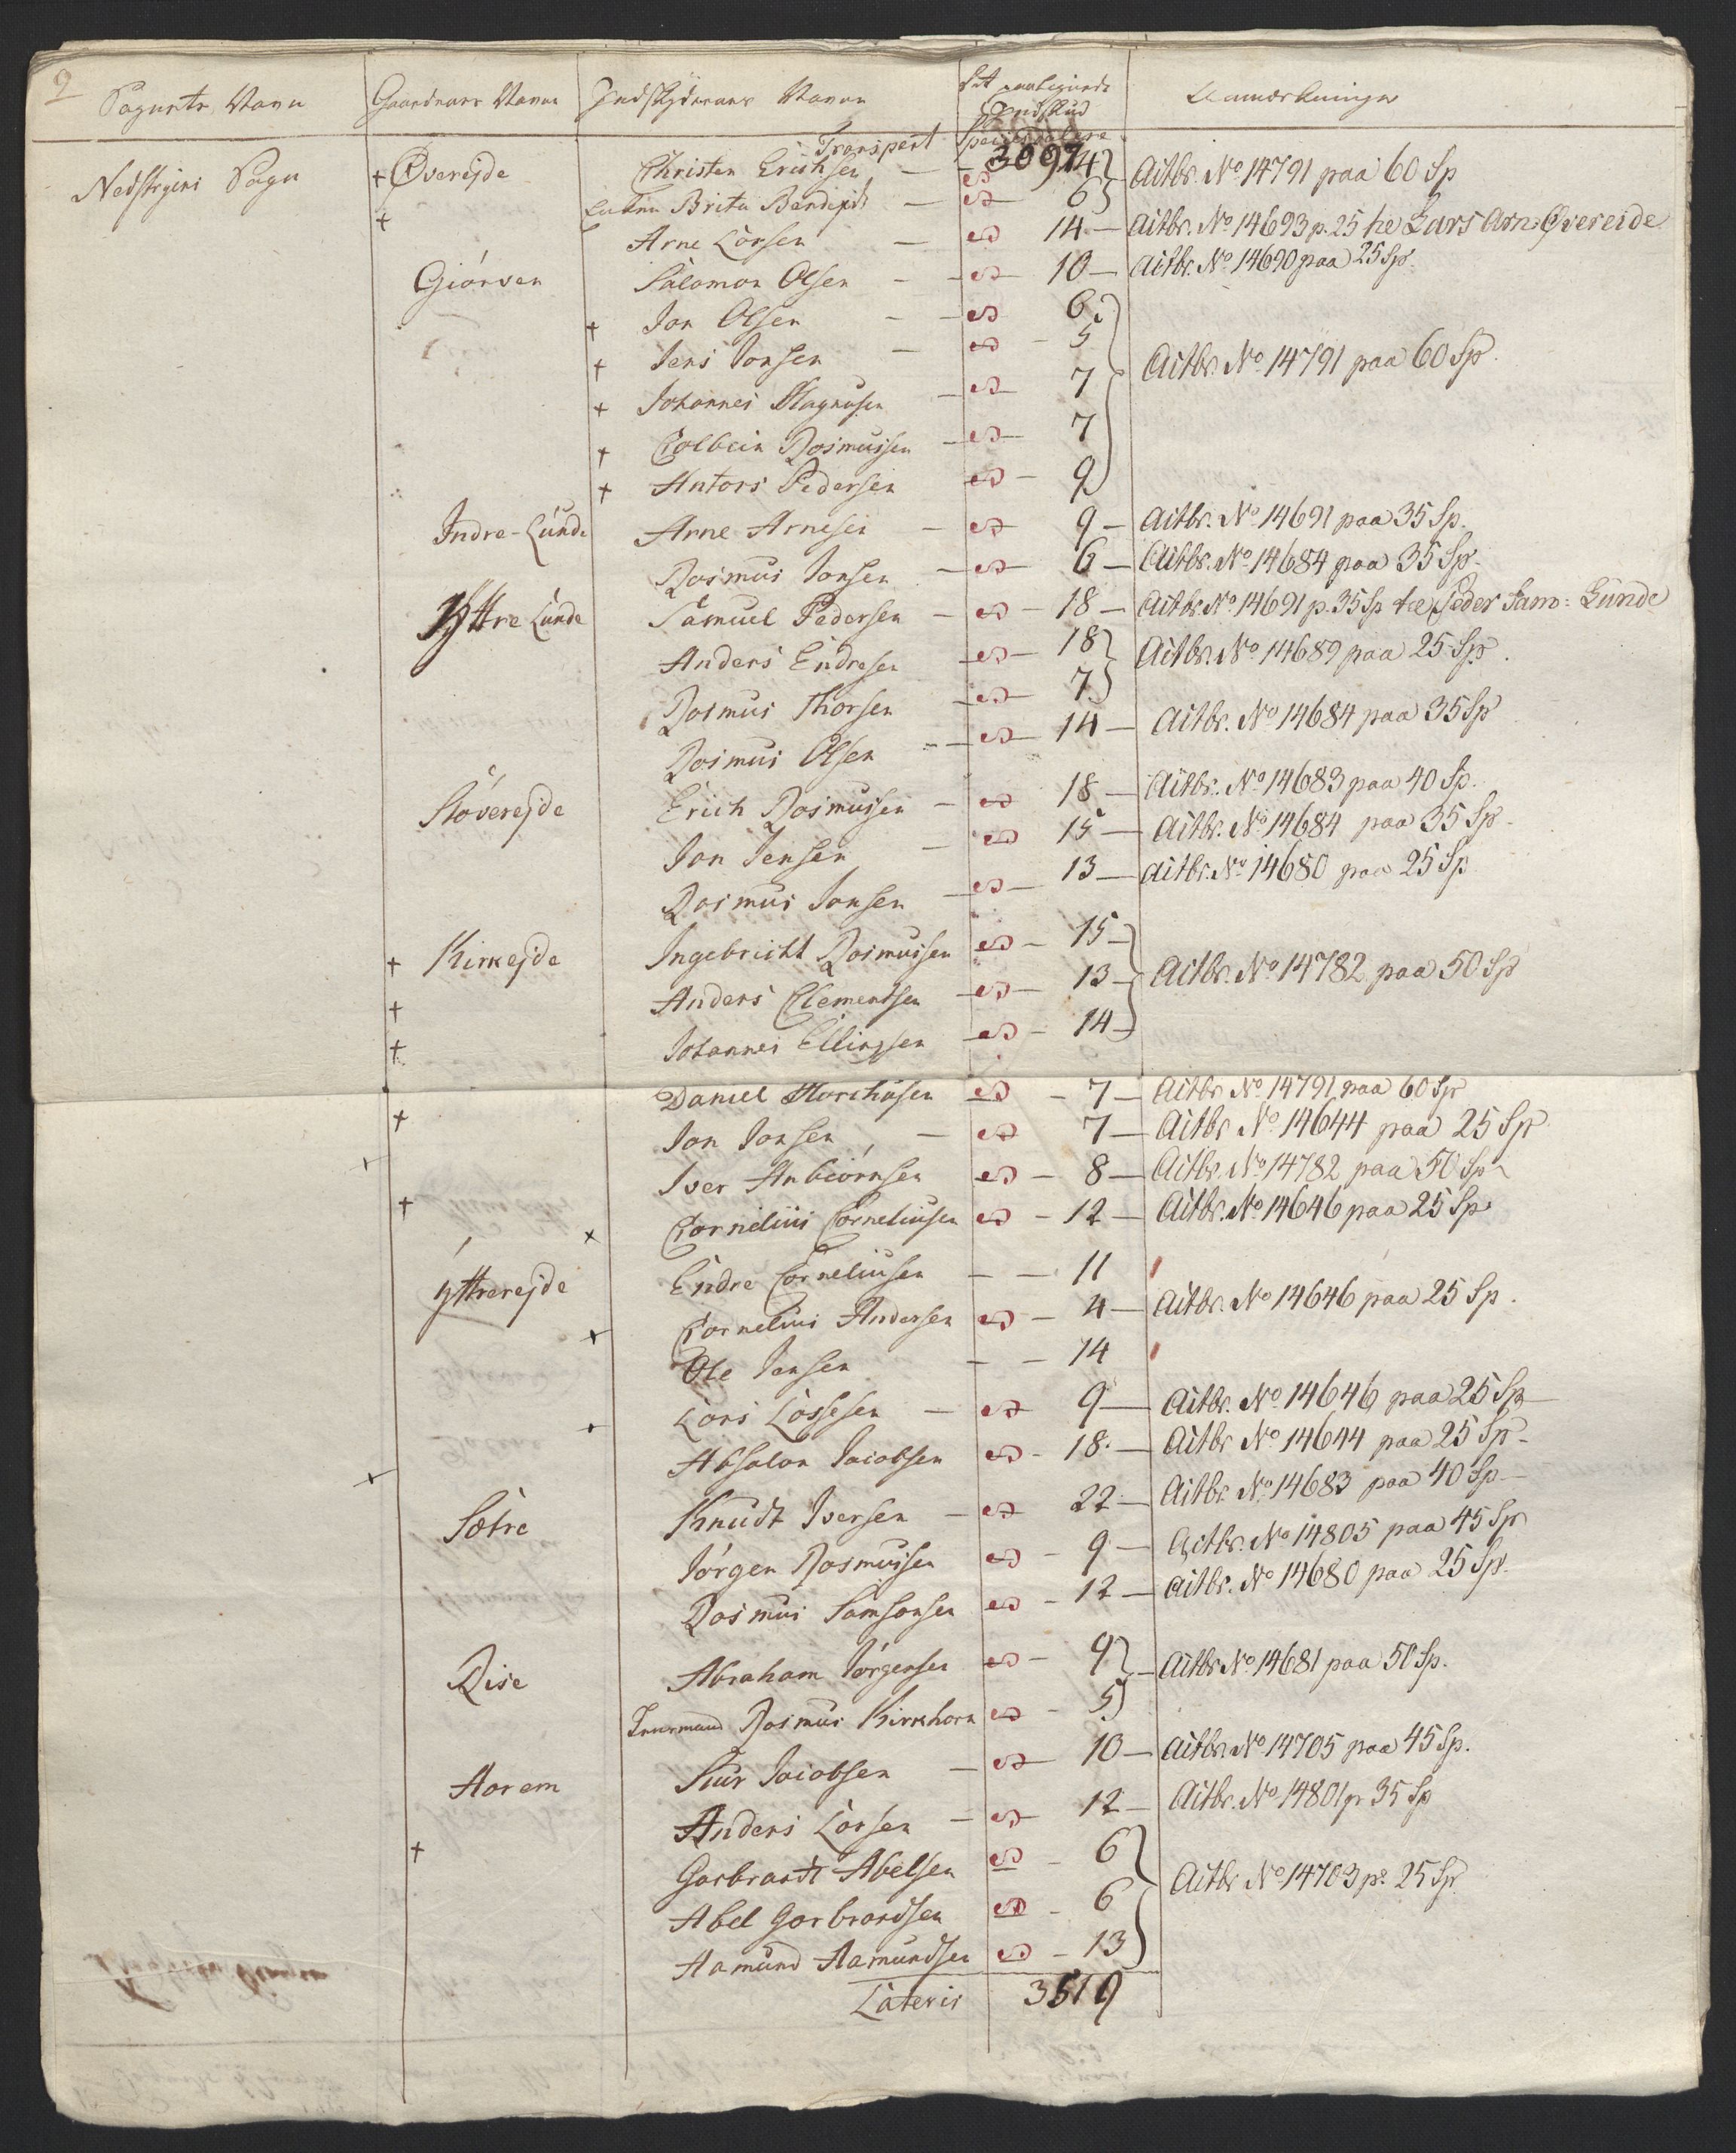 9
Sognets Navn Gaardenes Navne Indskyderens Navne Det paalignede Indskud Speciesdalere Anmærkninger
Transport 3097
Nedstryens Sogn + Øverejde Christen Erichsen - 14 Actbr. No 14791 paa 60 Sp
+ Enken Brite Bendixd - 6
Arne Larsen - 14 - Actbr. No 14693 p. 25 til Lars Arn: Øvereide
Giörven Salomon Olsen - 10 - Actbr. No 14690 paa 25 Sp.
+ Jon Olsen - 6
+ Jens Jonsen - 5
+ Johannes Magnusen - 7 Actbr. No 14791 paa 60 Sp.
+ Colbein Rasmussen - 7
+ Antors Pedersen - 9
Indre-Lunde Arne Arnesen - 9 - Actbr. No 14691 paa 35 Sp.
Rasmus Jonsen - 6 - Actbr. No 14684 paa 35 Sp.
Yttre Lunde Samuel Pedersen - 18 - Actbr. No 14691 p. 35 Sp til Peder Sam: Lunde
Anders Endresen - 18 Actbr. No 14689 paa 25 Sp.
Rasmus Thorsen - 7
Rasmus Olsen - 14 - Actbr. No 14684 paa 35 Sp
Støverejde Erich Rasmussen - 18 - Actbr. No 14683 paa 40 Sp.
Jon Jensen - 15 - Actbr. No 14684 paa 35 Sp.
Rasmus Jonsen - 13 - Actbr. No 14680 paa 25 Sp
+ Kirkejde Ingebricht Rasmussen - 15
+ Anders Clementsen - 13 Actbr. No 14782 paa 50 Sp
+ Johannes Ellingsen - 14
+ Daniel Marchusen - 7 - Actbr. No 14791 paa 60 Sp
+ Jon Jonsen - 7 - Actbr. No 14644 paa 25 Sp
+ Iver Anbiörnsen - 8 - Actbr. No 14782 paa 50 Sp
x Cornelius Corneliusen - 12 - Actbr. No 14646 paa 25 Sp
yttrerejde Endre Corneliusen - - 11
x Cornelius Andersen - 4 - Actbr. No 14646 paa 25 Sp.
Ole Jensen - - 14
+ Lars Lassesen - 9 - Actbr. No 14646 paa 25 Sp
+ Absalon Jacobsen - 18. - Actbr No 14644 paa 25 Sp.
Sætre Knudt Iversen - 22 - Actbr. No 14683 paa 40 Sp.
Jörgen Rasmussen - 9 - Actbr. No 14805 paa 45 Sp
Rasmus Samsonsen - 12 - Actbr. No 14680 paa 25 Sp.
Rise Abraham Jörgensen - 9 Actbr No 14681 paa 50 Sp.
Rasmus Kirkhorn - 5
Aarem Siur Jacobsen - 10 - Actbr. No 14705 paa 45 Sp.
+ Anders Larsen - 12 - Actbr. No 14801 p 35 Sp
Garbrandt Abelsen - 6
Abel Garbrandsen - 6 Actbr No 14703 p. 25 Sp
Aamund Aamundsen - 13
Lateris 3519